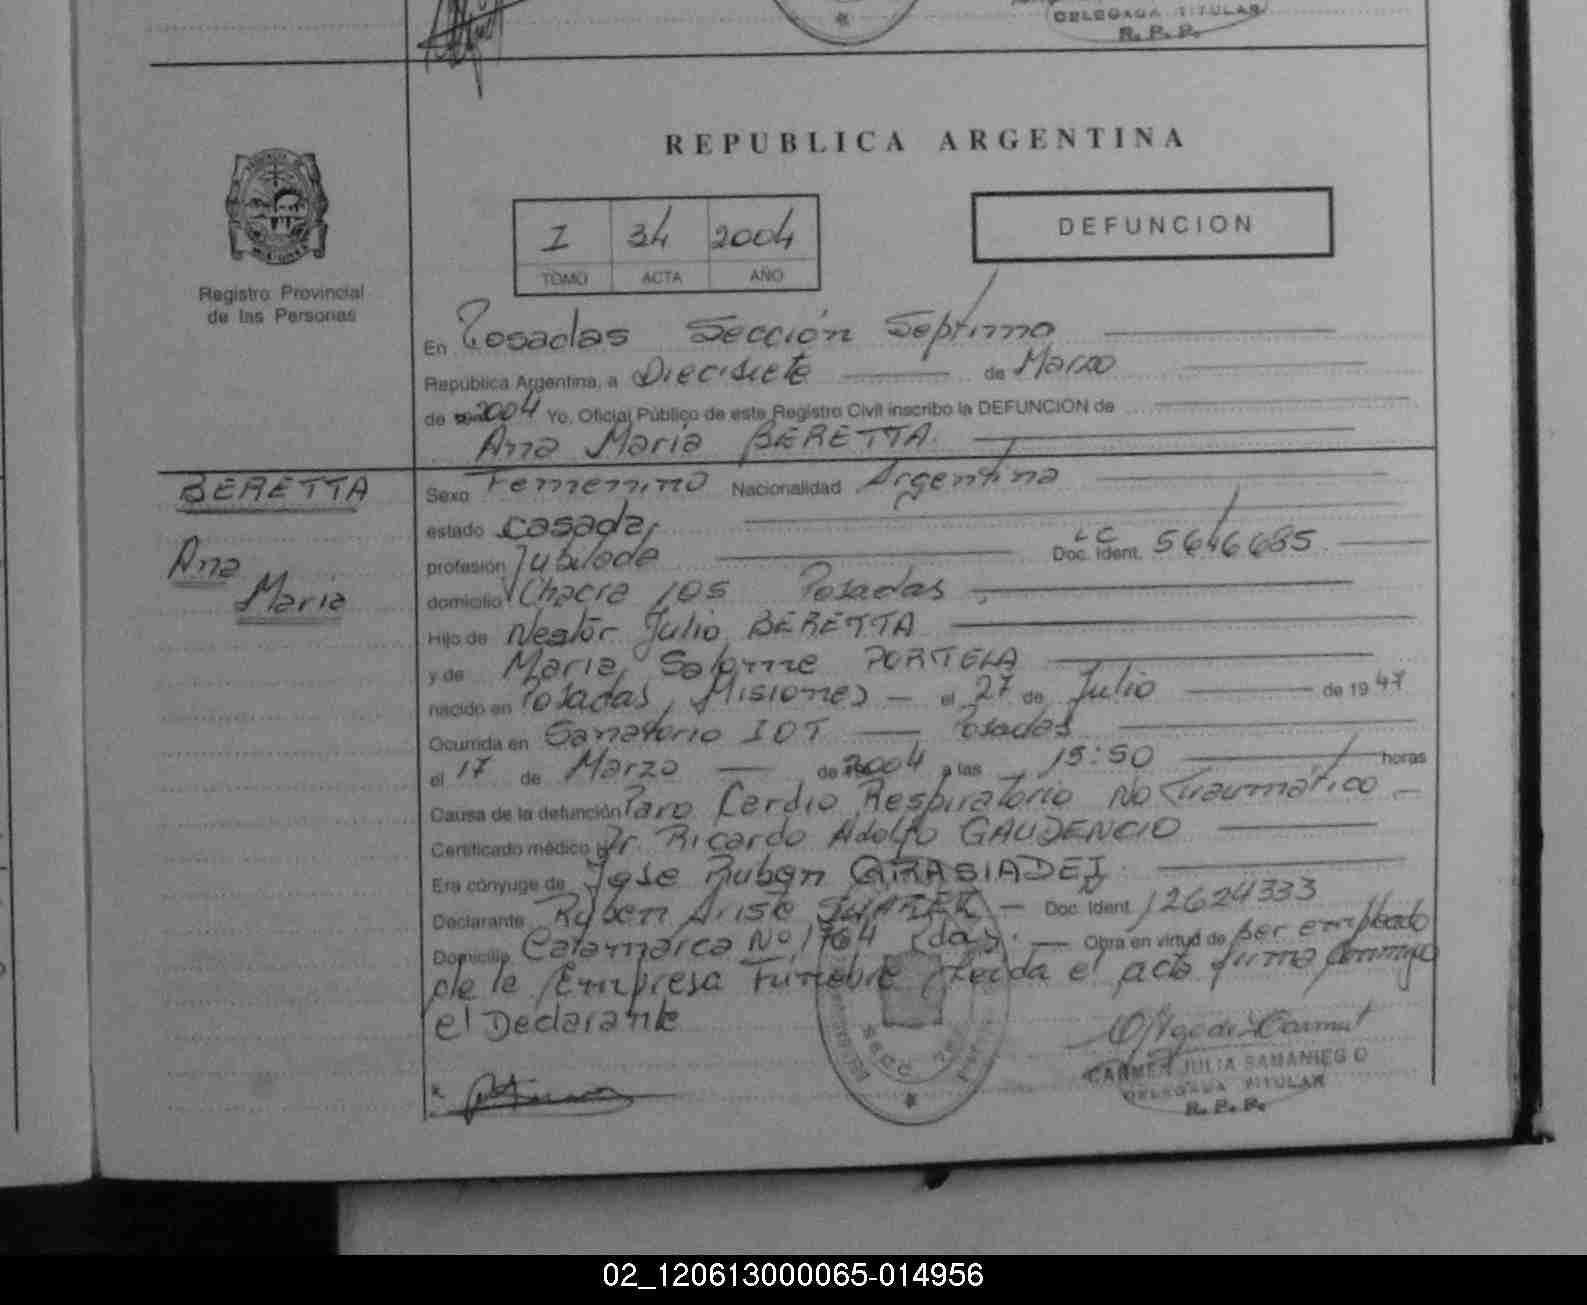 DELEGADA TITULAR
R. P. P.
REPUBLICA ARGENTINA
I 34 2004
TOMO ACTA AÑO
DEFUNCION
Registro Provincial
de las Personas
En Posadas Sección Septimo
República Argentina, a Diecisiete de Marzo
de 2004 Yo, Oficial Público de este Registro Civil inscribo la DEFUNCION de
Ana Maria BERETTA.
BERETTA
Ana
Maria
Sexo Femenino Nacionalidad Argentina
estado casada,
profesión Jubilada Doc. Ident. LC 5646685
domicilio Chacra 105 Posadas
Hijo de Nestor Julio BERETTA
y de Maria Salome PORTELA
nacido en Posadas, Misiones el 27 de Julio de 1947
Ocurrida en Sanatorio IOT Posadas
el 17 de Marzo de 2004 a las 15:50 horas
Causa de la defunción Paro Cardio Respiratorio No Traumático
Certificado médico Dr. Ricardo Adolfo GAUDENCIO
Era cónyuge de Jose Ruben
Declarante Ruben Doc. Ident. 12624333
Domicilio Catamarca Nº 1764 Pdas. Obra en virtud de ser empleado
de la Empresa Funebre Leida el acta firma conmigo
el Declarante
CARMEN JULIA SAMANIEGO
DELEGADA TITULAR
R. P. P.
02_120613000065-014956